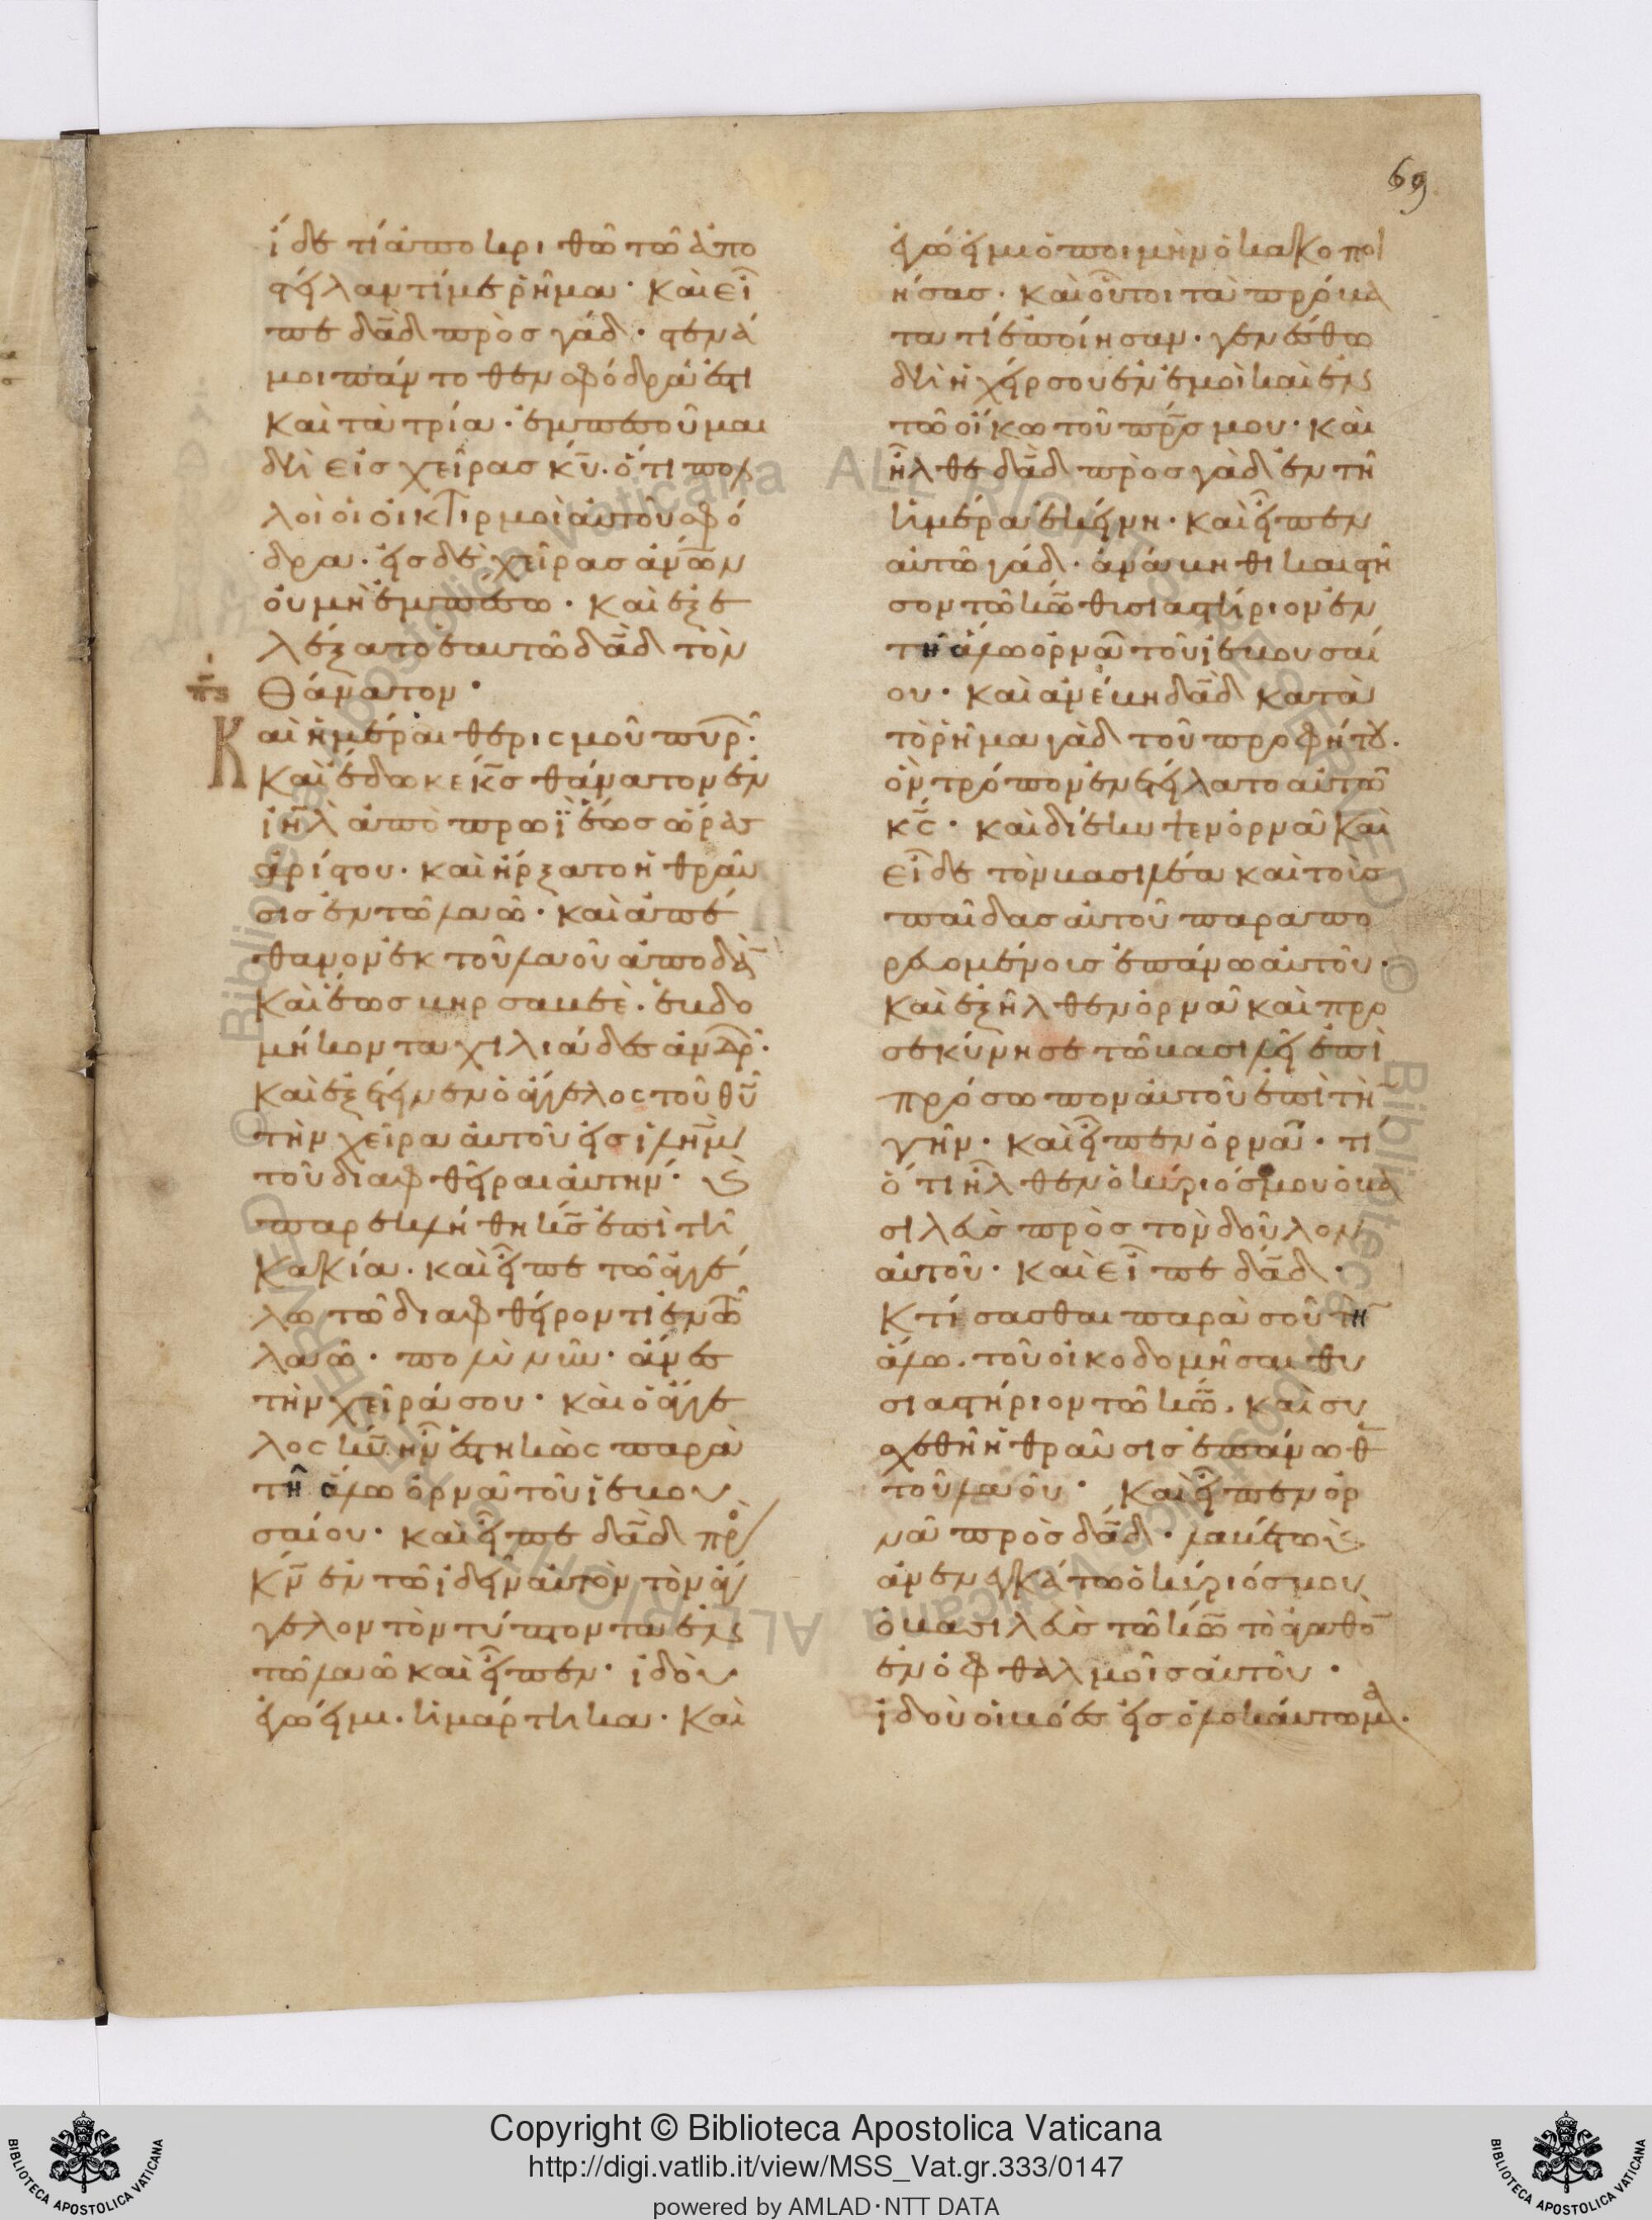 69
ἴδε τί ἀποκριθῶ τῶ ἀπο
στείλαντί με ῥῆμα· καὶ εἶ
πε δᾱδ πρὸς γάδ· στενά
μοι πάντοθεν σφόδρα ἐστὶ
καὶ τὰ τρία· ἐμπεσοῦμαι
δὴ εἰς χεῖρας κ̅υ̅· ὅτι πολ
λοὶ οἱ οἰκτιρμοὶ αὐτοῦ σφό
δρα· εἰς δὲ χεῖρας ἀν̅ω̅ν
οὐ μὴ ἐμπέσω· καὶ ἐξε
λέξατο ἑαυτῶ δᾱδ τὸν
θάνατον·
Καὶ ἡμέραι θερισμοῦ πυρ̑·
καὶ ἔδωκε κ̅ς̅ θάνατον ἐν
ι̅η̅λ̅ ἀπὸ πρωῒ ἕως ὥρας
ἀρίστου· καὶ ἤρξατο ἡ θραῦ
σις ἐν τῶ λαῶ· καὶ ἀπέ
θανον ἐκ τοῦ λαοῦ ἀπὸ δὰ̅
καὶ ἕως βηρσαβεὲ· ἑβδο
μήκοντα χιλιάδες ἀνδρ̑·
καὶ ἐξέτεινεν ὁ ἄγγελος τοῦ θ̅υ̅
τὴν χεῖρα αὐτοῦ εἰς ἰλη̅μ
τοῦ διαφθεῖραι αὐτήν· ϗ
παρεκλήθη κ̅ς̅ ἐπὶ τῆ
κακία· καὶ εἶπε τῶ ἀγγέ
λω τῶ διαφθείροντι ἐν τῶ
λαῶ· πολὺ νῦν· ἄνες
τὴν χεῖρά σου· καὶ ὁ ἄγγε
λος κ̅υ̅ ἦν ἑστηκὼς παρὰ
τῆ ἅλω ὀρνᾶ τοῦ ἰεβου
σαίου· καὶ εἶπε δᾱδ πρὸ
κ̅ν̅ ἐν τῶ ἰδεῖν αὐτὸν τὸν ἄγ
γελον τὸν τύπτοντα ἐν
τῶ λαῶ καὶ εἶπεν· ἰδοὺ
ἐγώ εἰμι· ἡμάρτηκα· καὶ
ἐγώ εἰμι ὁ ποιμὴν ὁ κακοποι
ήσας· καὶ οὗτοι τὰ πρόβα
τα τί ἐποίησαν· γενέσθω
δὴ ἡ χείρ σου ἐν ἐμοὶ καὶ ἐν
τῶ οἴκω τοῦ π̅ρ̅ς̅ μου· καὶ
ἦλθε δᾱδ πρὸς γὰδ ἐν τῆ
ἡμέρα ἐκείνη· καὶ εἶπεν
αὐτῶ γάδ· ἀνάβηθι καὶ στῆ
σον τῶ κ̅ω̅ θυσιαστήριον ἐν
τῆ ἅλω ὀρνᾶ τοῦ ἰεβουσαί
ου· καὶ ἀνέβη δᾱδ κατὰ
τὸ ῥῆμα γὰδ τοῦ προφήτου·
ὃν τρόπον ἐνετείλατο αὐτῶ
κ̅ς̅· καὶ διέκυψεν ὀρνᾶ καὶ
εἶδε τὸν βασιλέα καὶ τοὺς
παῖδας αὐτοῦ παραπο
ρευομένους ἐπάνω αὐτοῦ·
καὶ ἐξῆλθεν ὀρνᾶ καὶ προ
σεκύνησε τῶ βασιλεῖ ἐπὶ
πρόσωπον αὐτοῦ ἐπὶ τὴ̅
γῆν· καὶ εἶπεν ὀρνᾶ· τί
ὅτι ἦλθεν ὁ κύριός μου ὁ βα
σιλεὺς πρὸς τὸν δοῦλον
αὐτοῦ· καὶ εἶπε δᾱδ·
κτίσασθαι παρὰ σοῦ τὴ̅
ἅλω· τοῦ οἰκοδομῆσαι θυ
σιαστήριον τῶ κ̅ω̅· καὶ συ
σχεθῆ ἡ θραῦσις ἐπάνωθ̅
τοῦ λαοῦ· καὶ εἶπεν ὀρ
νᾶ πρὸς δᾱδ· λαβέτω ϗ
ἀνενεγκάτω ὁ κύριός μου
ὁ βασιλεὺς τῶ κ̅ω̅ τὸ ἀγαθὸ̅
ἐν ὀφθαλμοῖς αὐτοῦ·
ἰδοὺ οἱ βόες εἰς ὁλοκαύτωμα·
Copyright © Biblioteca Apostolica Vaticana
http://digi.vatlib.it/view/MSS_Vat.gr.333/0147
powered by AMLAD·NTT DATA